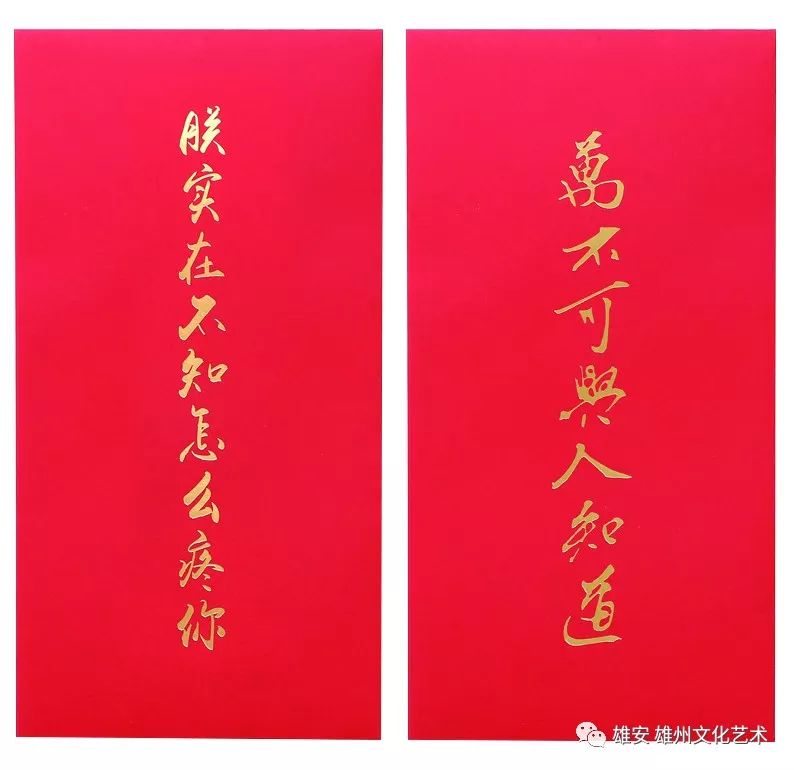 朕实在不知怎么疼你
萬不可與人知道
雄安 雄州文化艺术